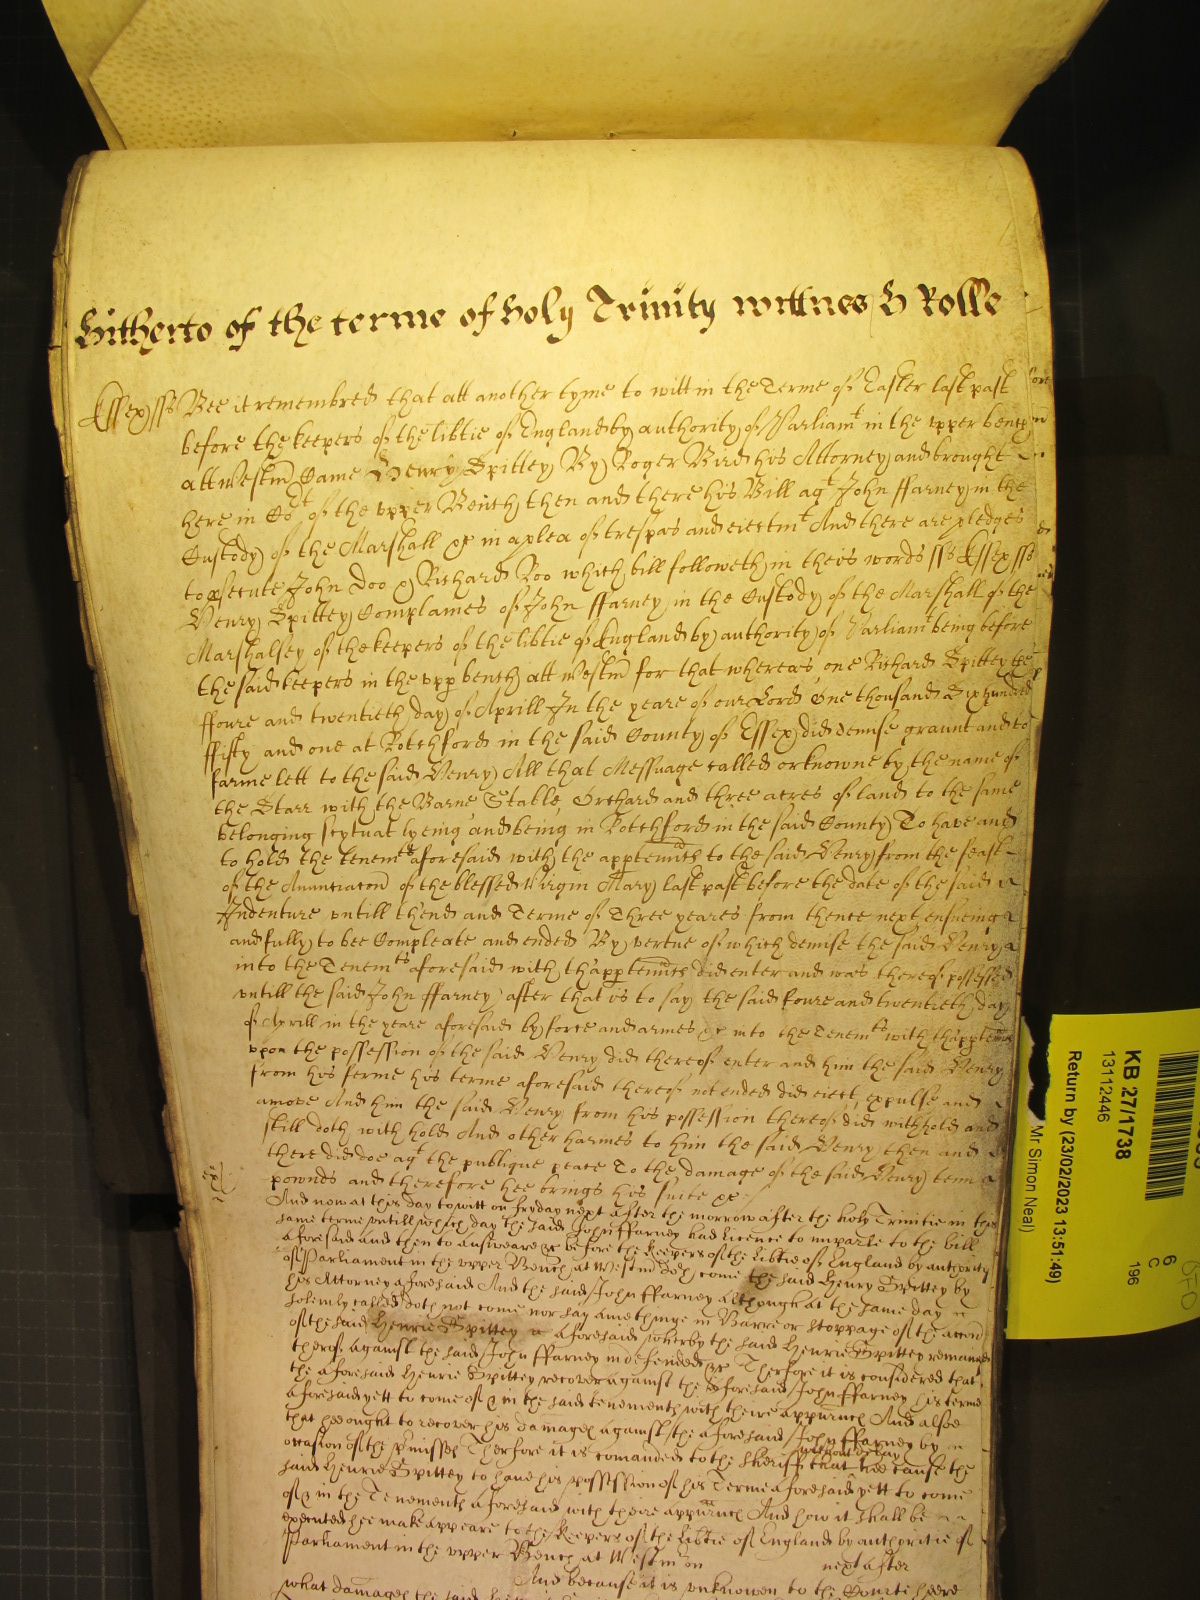 Hitherto of the terme of holy Trinity wittnes H Rolle
Essex ss Bee it remembred that att another tyme to witt in the Terme of Easter last past
before the keepers of the lib̃tie of England by authority of Parliamt in the upper bench
att Westm̃ Came Henry Spittey By Roger Bird his Attorney and brought
here in Cot of the upper Bench then and there his Bill agt John ffarney in the
Custody of the Marshall &c in a plea of trespas and eiectmt And there are pledges
to psecute John Doo & Richard Roo which bill followeth in theis words ss Essex ss
Henry Spittey Complaines of John ffarney in the Custody of the Marshall of the
Marshalsey of the keepers of the lib̃tie of England by authority of Parliamt being before
the said keepers in the upp bench att Westm̃ for that whereas one Richard Spittey the
ffoure and twentieth day of Aprill In the yeare of our Lord One thousand Six hundred
ffifty and one at Rotchford in the said County of Essex did demise graunt and to
farme lett to the said Henry All that Messuage called or knowne by the name of
the Starr with the Barne Stable Orchard and three acres of land to the same
belonging scytuat lyeing and being in Rotchford in the said County To have and
to hold the tenemts aforesaid with the apptennc̃s to the said Henry from the feast
of the Anunciac̃on of the blessed Virgin Mary last past before the date of the said
Indenture untill thend and Terme of Three yeares from thence next ensueing
and fully to bee Compleate and ended By vertue of which demise the said Henry
into the Tenemts aforesaid with thapptennc̃s did enter and was thereof possessed
untill the said John ffarney after that is to say the said foure and twentieth day
of Aprill in the yeare aforesaid by force and armes &c into the Tenemts with thapptennc̃s
upon the possession of the said Henry did thereof enter and him the said Henry
from his ferme his terme aforesaid thereof not ended did eiect expulse and
amove And him the said Henry from his possession thereof did withhold and
still doth with hold And other harmes to him the said Henry then and
there did doe agt the publique peace To the damage of the said Henry tenn
pownds and therefore hee brings his suite &c
And now at this day to witt on fryday next after the morrow after the holy Trinitie in this
same terme untill which day the said John ffarney had Licence to imparle to the bill
aforesaid and then to answeare &c before the keepers of the Lib̃tie of England by authority
of Parliament in the upper Bench at Westm̃ doth come the said Henry Spittey by
his Attorney aforesaid And the said John ffarney although at the same day
solemly called doth not come nor say anie thinge in Barre or stoppage of the acc̃on
of the said Henrie Spittey aforesaid wherby the said Henrie Spittey remaines
therof against the said John ffarney indefended &c Therfore it is considered that
the aforesaid Henrie Spittey recover against the aforesaid John ffarney his terme
aforesaid yett to come of & in the said tenements with theire appurnc̃s And alsoe
that hee ought to recover his damages against the aforesaid John ffarney by
occasion of the pmisses Therfore it is comanded to the Sheriff that without delay hee cause the
said Henrie Spittey to have his possession of his Terme aforesaid yett to come
of & in the Tenements aforesaid with theire appurnc̃s And how it shall be
executed hee make appeare to the Keepers of the Lib̃tie of England by authoritie of
Parliament in the upper Bench at Westm̃ on next after
And because it is unknowen to the Courte heere
what damages the said
KB 27/1738
13112446
Return by (23/02/2023 13:51:49)
Mr Simon Neal)
6
C
196